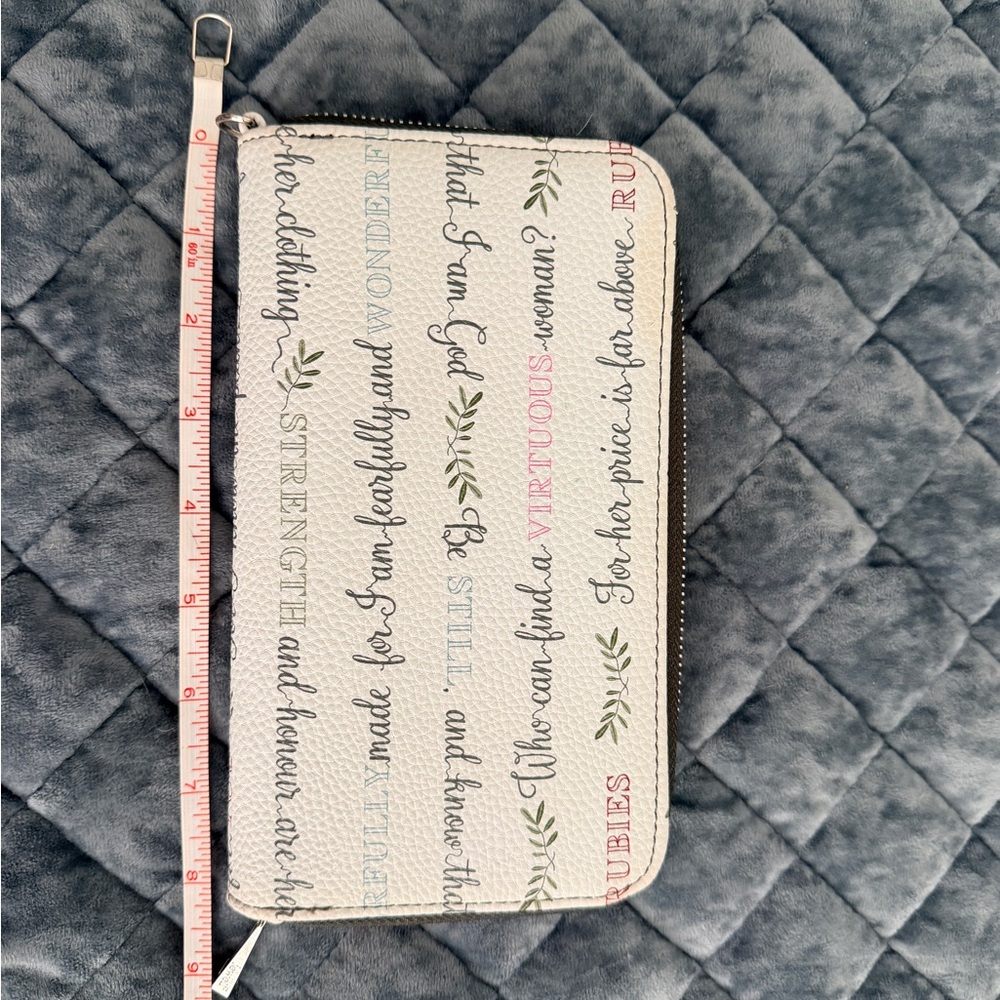 her clothing STRENGTH and honour are her
RFULLY made for I am fearfully and WONDERFU
that I am God Be STILL, and know tha
Who can find a VIRTUOUS woman?
RUBIES For her price is far above RUB
0
1
60 in
2
3
4
5
6
7
8
9